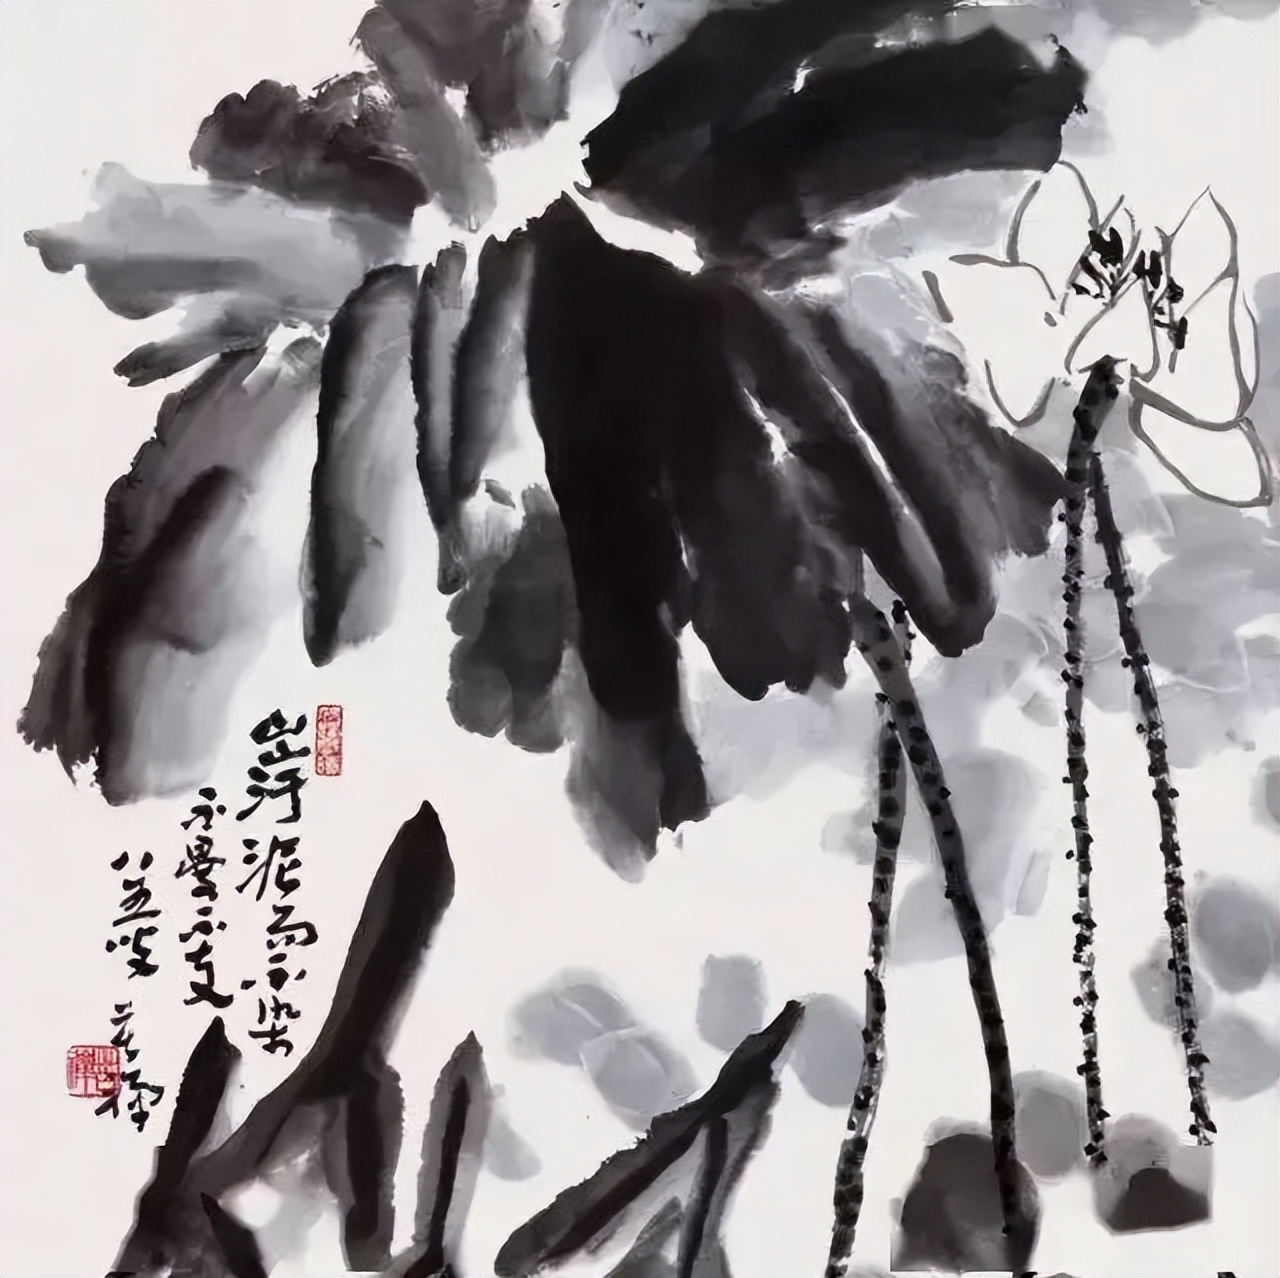 出污泥而不染
不曼不支
八五叟